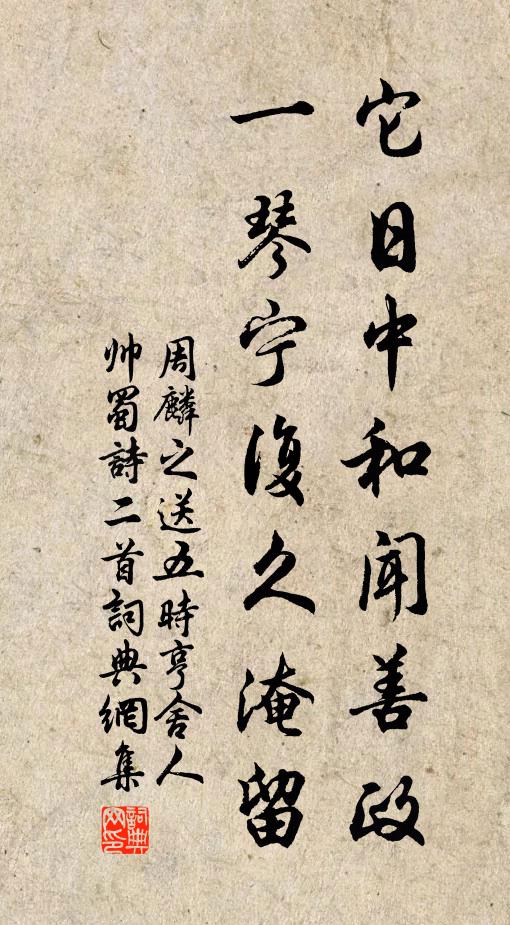 它日中和闻善政
一琴宁復久淹留
周麟之送五時亨舍人
帅蜀詩二首詞典網集
詞典网印